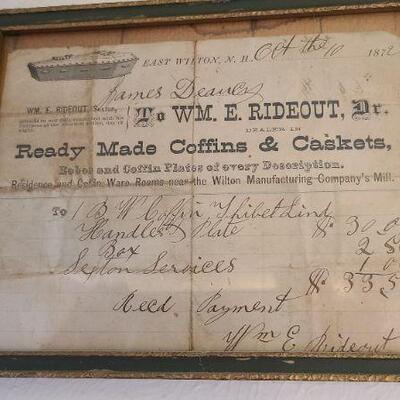 EAST WILTON, N. H. Oct the 10 1872
James
WM. E. RIDEOUT, Sexton,
To WM. E. RIDEOUT, Dr.
DEALER IN
Ready Made Coffins & Caskets,
Robes and Coffin Plates of every Description.
Residence and Coffin Ware Rooms near the Wilton Manufacturing Company's Mill.
To 1 B W Coffin Thibet Lind
Handles & Plate $ 30 0
Box 2 5
Sexton Services 1 0
$ 33 5
Recd Payment
Wm E Rideout